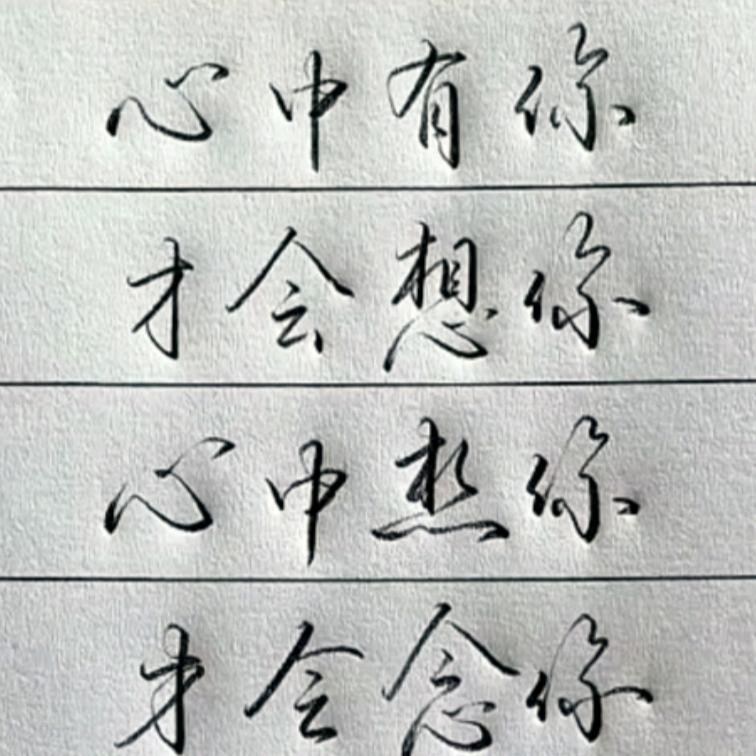 心中有你
才会想你
心中想你
才会念你